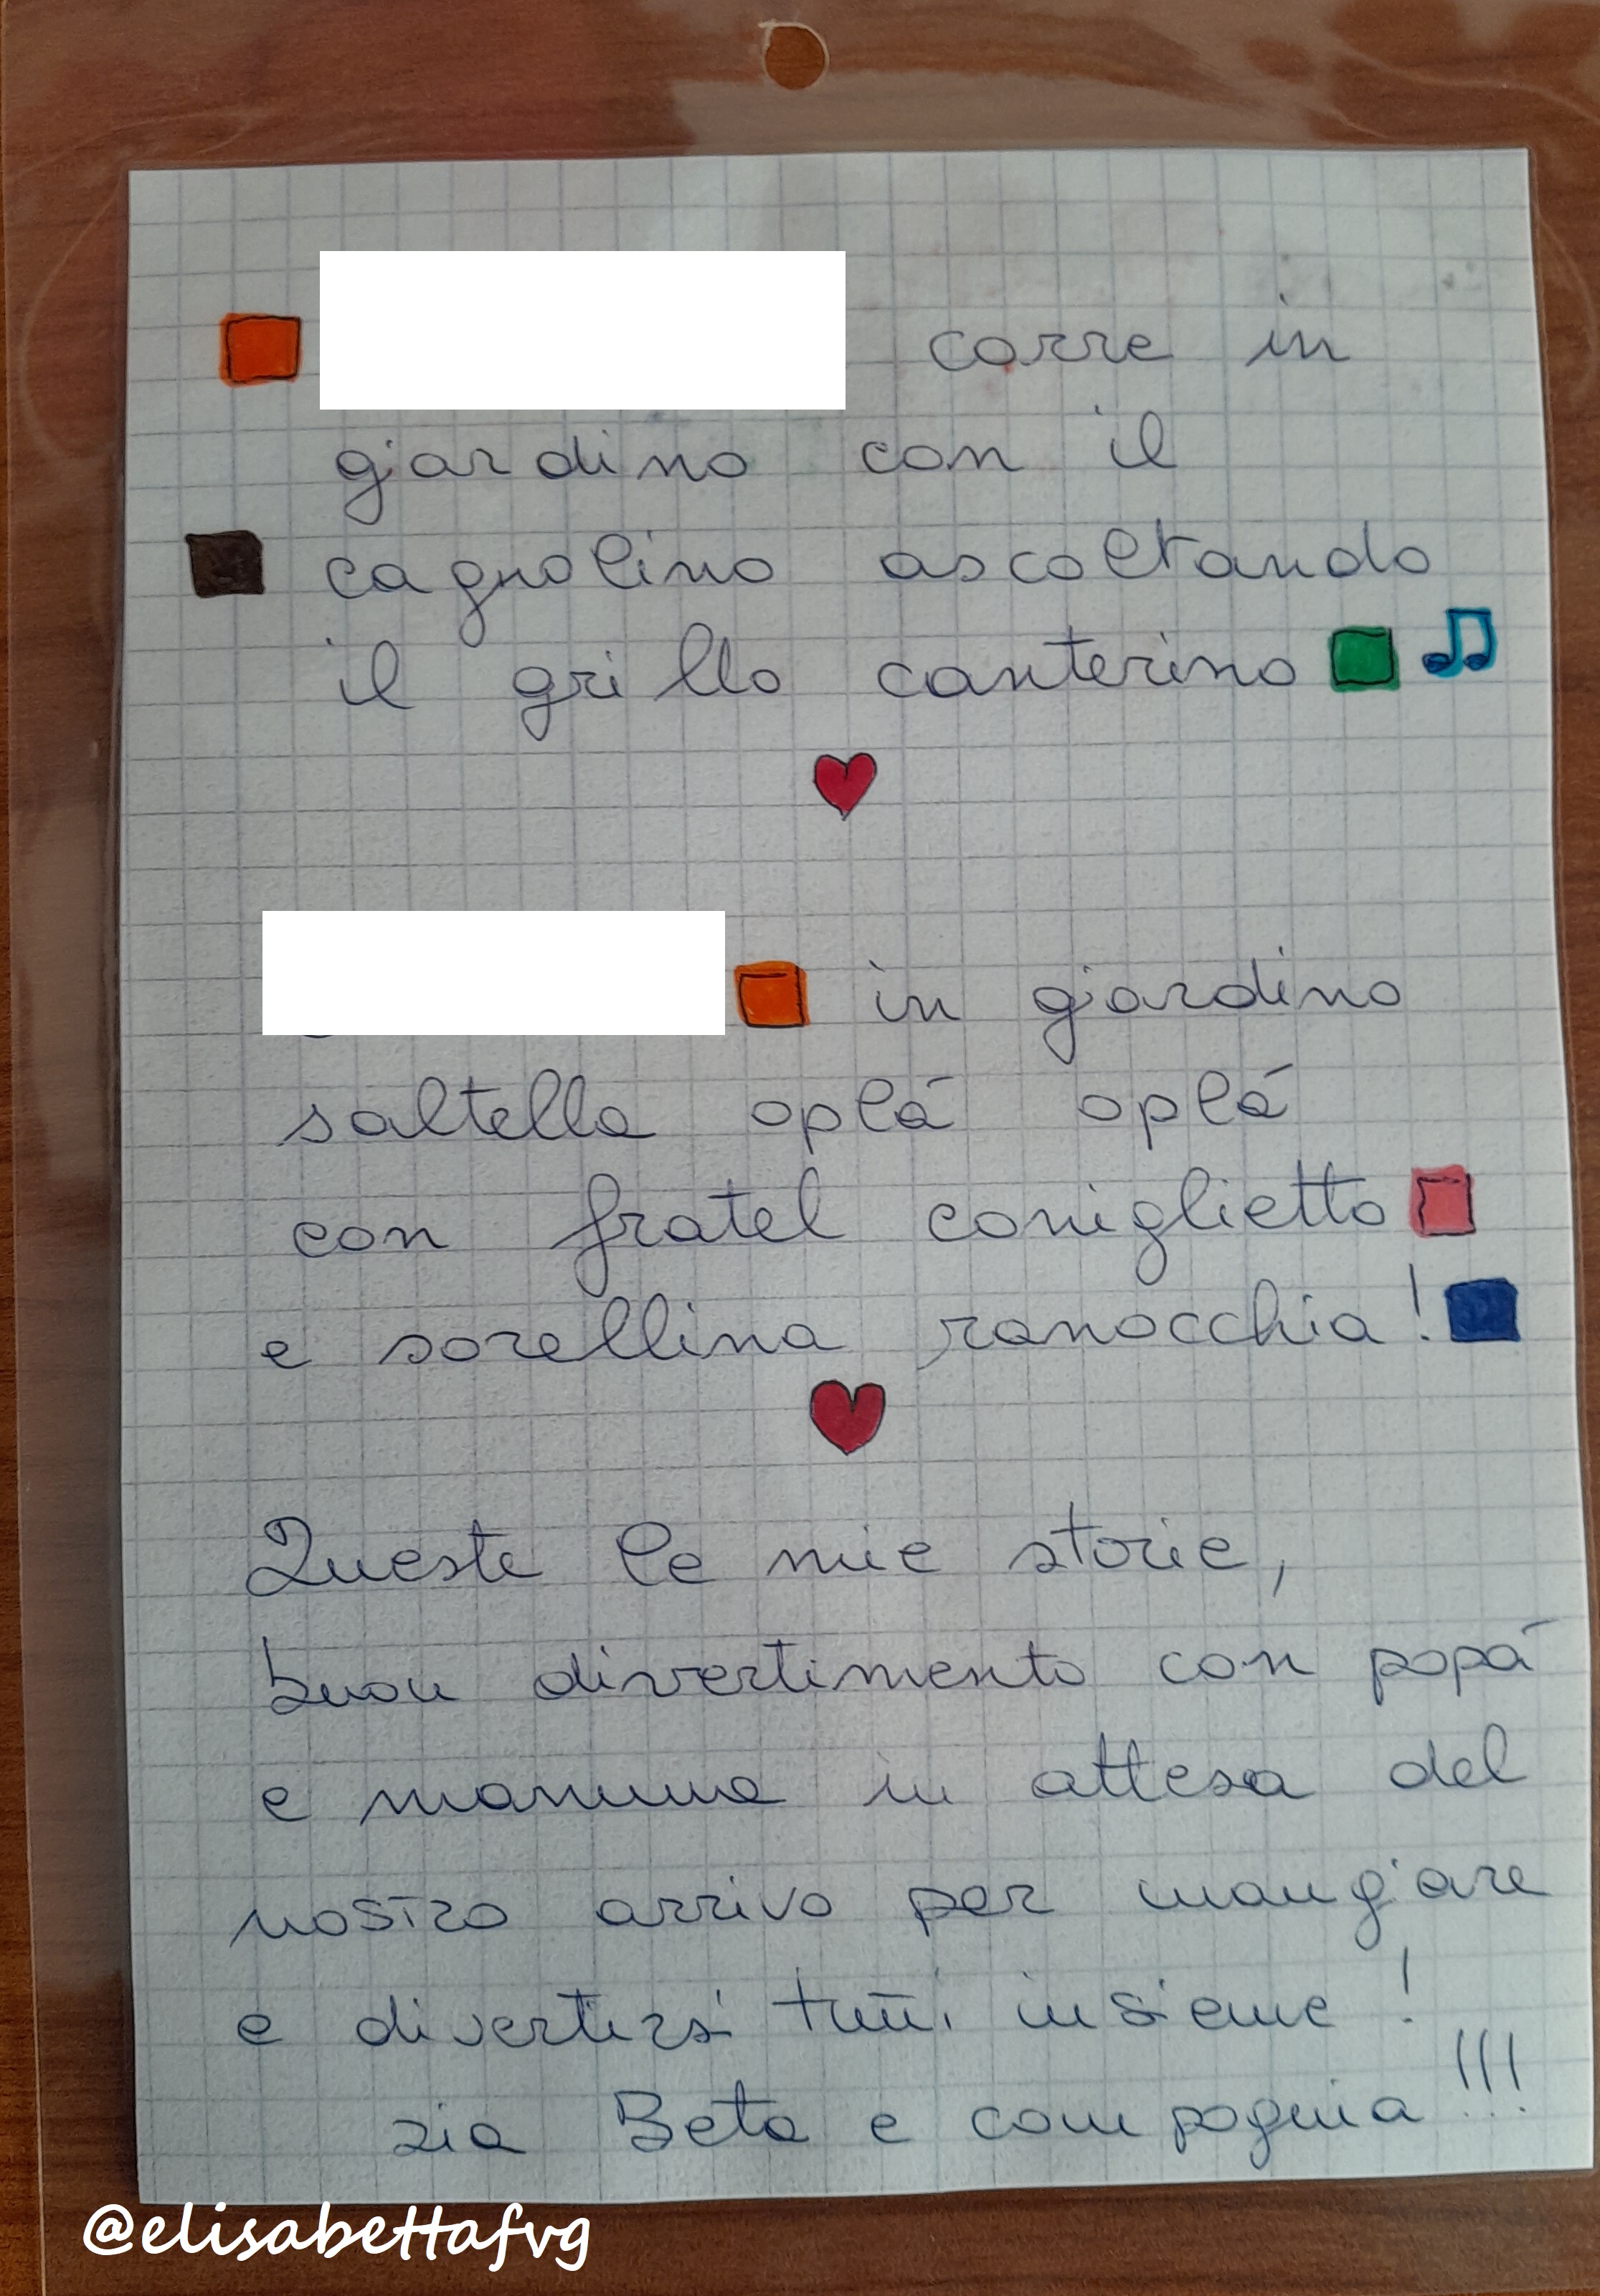 corre in
giardino con il
cagnolino ascoltando
il grillo canterino
in giardino
saltella oplá oplá
con fratel coniglietto
e sorellina ranocchia!
Queste le mie storie,
buon divertimento con papá
e mamma in attesa del
nostro arrivo per mangiare
e divertirsi tutti insieme!
zia Beta e compagnia!!!
@elisabettafvg